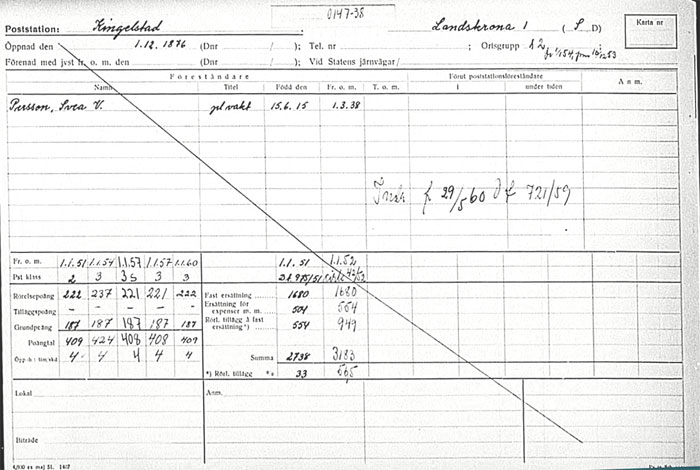 0147-38
Poststation: Kingelstad Landskrona 1 (S D) Karta nr
Öppnad den 1.12.1876 (Dnr / ); Tel. nr Ortsgrupp
Förenad med jvst fr. o. m. den (Dnr / ); Vid Statens järnvägar/
Föreståndare Förut poststationsföreståndare Anm.
Namn Titel Född den Fr. o. m. T. o. m. i under tiden
Persson, Svea V. plvakt 15.6.15 1.3.38
Indr f 29/5 60 d f 721/59
Fr. o. m. 1.1.51 1.1.54 1.1.57 1.1.57 1.1.60 1.1.51 1.1.52
Pst klass 2 3 3s 3 3
Rörelsepoäng 222 237 221 221 222 Fast ersättning 1680 1680
Tilläggspoäng - - - - - Ersättning för expenser m. m. 504 554
Grundpoäng 187 187 187 187 187 Rörl. tillägg å fast ersättning*) 554 949
Poängtal 409 424 408 408 409
4 4 4 4 4 Summa 2738 3183
*) Rörl. tillägg 33 565
Lokal Anm.
Biträde